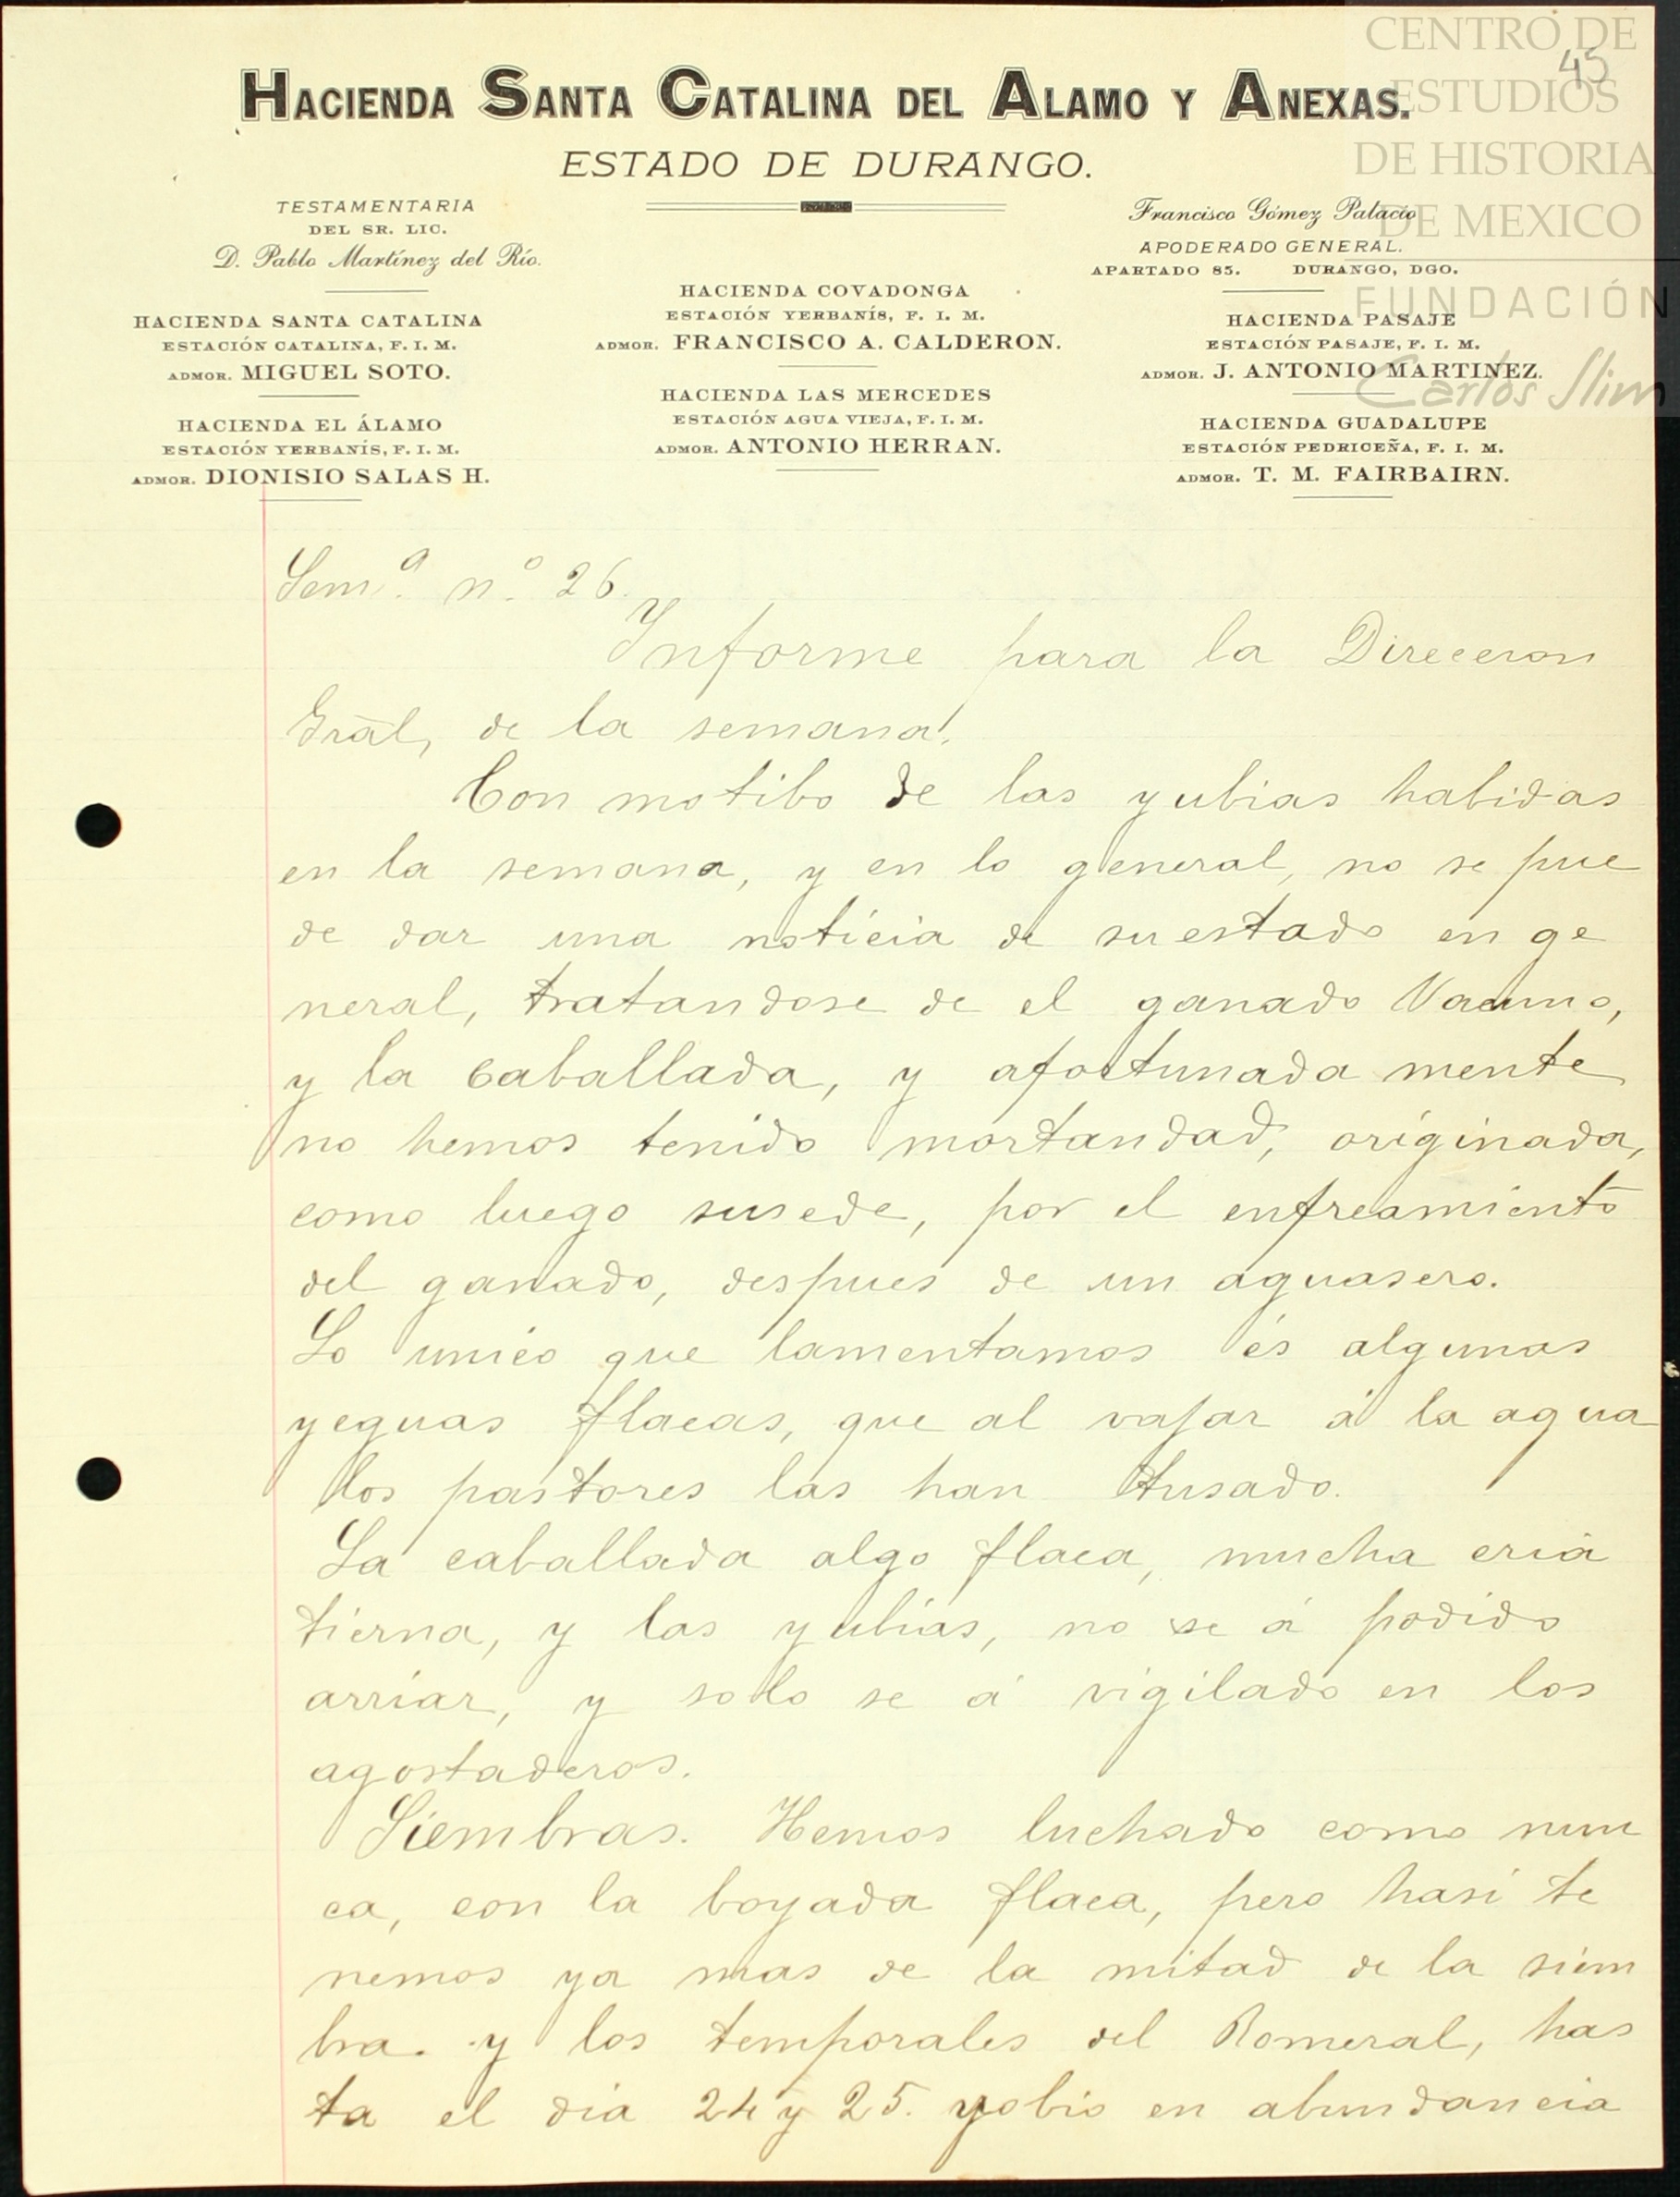 CENTRO DE
ESTUDIOS
DE HISTORIA
DE MEXICO
FUNDACIÓN
Carlos Slim
45
HACIENDA SANTA CATALINA DEL ALAMO Y ANEXAS.
ESTADO DE DURANGO.
TESTAMENTARIA
DEL SR. LIC.
D. Pablo Martínez del Río.
HACIENDA SANTA CATALINA
ESTACIÓN CATALINA, F. I. M.
ADMOR. MIGUEL SOTO.
HACIENDA EL ÁLAMO
ESTACIÓN YERBANÍS, F. I. M.
ADMOR. DIONISIO SALAS H.
HACIENDA COVADONGA
ESTACIÓN YERBANÍS, F. I. M.
ADMOR. FRANCISCO A. CALDERON.
HACIENDA LAS MERCEDES
ESTACIÓN AGUA VIEJA, F. I. M.
ADMOR. ANTONIO HERRAN.
Francisco Gómez Palacio
APODERADO GENERAL.
APARTADO 85. DURANGO, DGO.
HACIENDA PASAJE
ESTACIÓN PASAJE, F. I. M.
ADMOR. J. ANTONIO MARTINEZ.
HACIENDA GUADALUPE
ESTACIÓN PEDRICEÑA, F. I. M.
ADMOR. T. M. FAIRBAIRN.
Semª. nº. 26.
Informe para la Direccion
Gral, de la semana.
Con motibo de las yubias habidas
en la semana, y en lo general, no se pue
de dar una noticia de su estado en ge
neral, tratandose de el ganado Vacuno,
y la caballada, y afortunada mente
no hemos tenido mortandad, originada,
como luego susede, por el enfreamiento
del ganado, despues de un aguasero.
Lo unico que lamentamos és algunas
yeguas flacas, que al vajar á la agua
los pastores las han tusado.
La caballada algo flaca, mucha cria
tierna, y las yubias, no se á podido
arriar, y solo se á vigilado en los
agostaderos.
Siembras. Hemos luchado como nun
ca, con la boyada flaca, pero hasi te
nemos ya mas de la mitad de la siem
bra. y los temporales del Romeral, has
ta el dia 24 y 25. yobio en abundancia